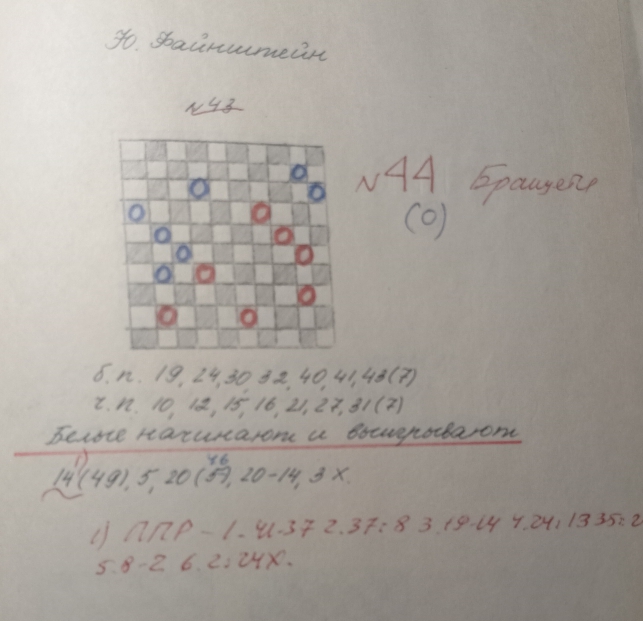 Ю. Файнштейн
№43
№44
(0)
б.п. 19, 24, 30, 32, 40, 41, 43 (7)
ч.п. 10, 12, 15, 16, 21, 27, 31 (7)
Белые начинают и выигрывают
1)
46
14 (49), 5, 20 (37, 20-14, 3 X.
1) ППР - 1. 41-37 2. 37:8 3. 19-14 4. 24:13 35:2
5. 8-2 6. 2:24X.